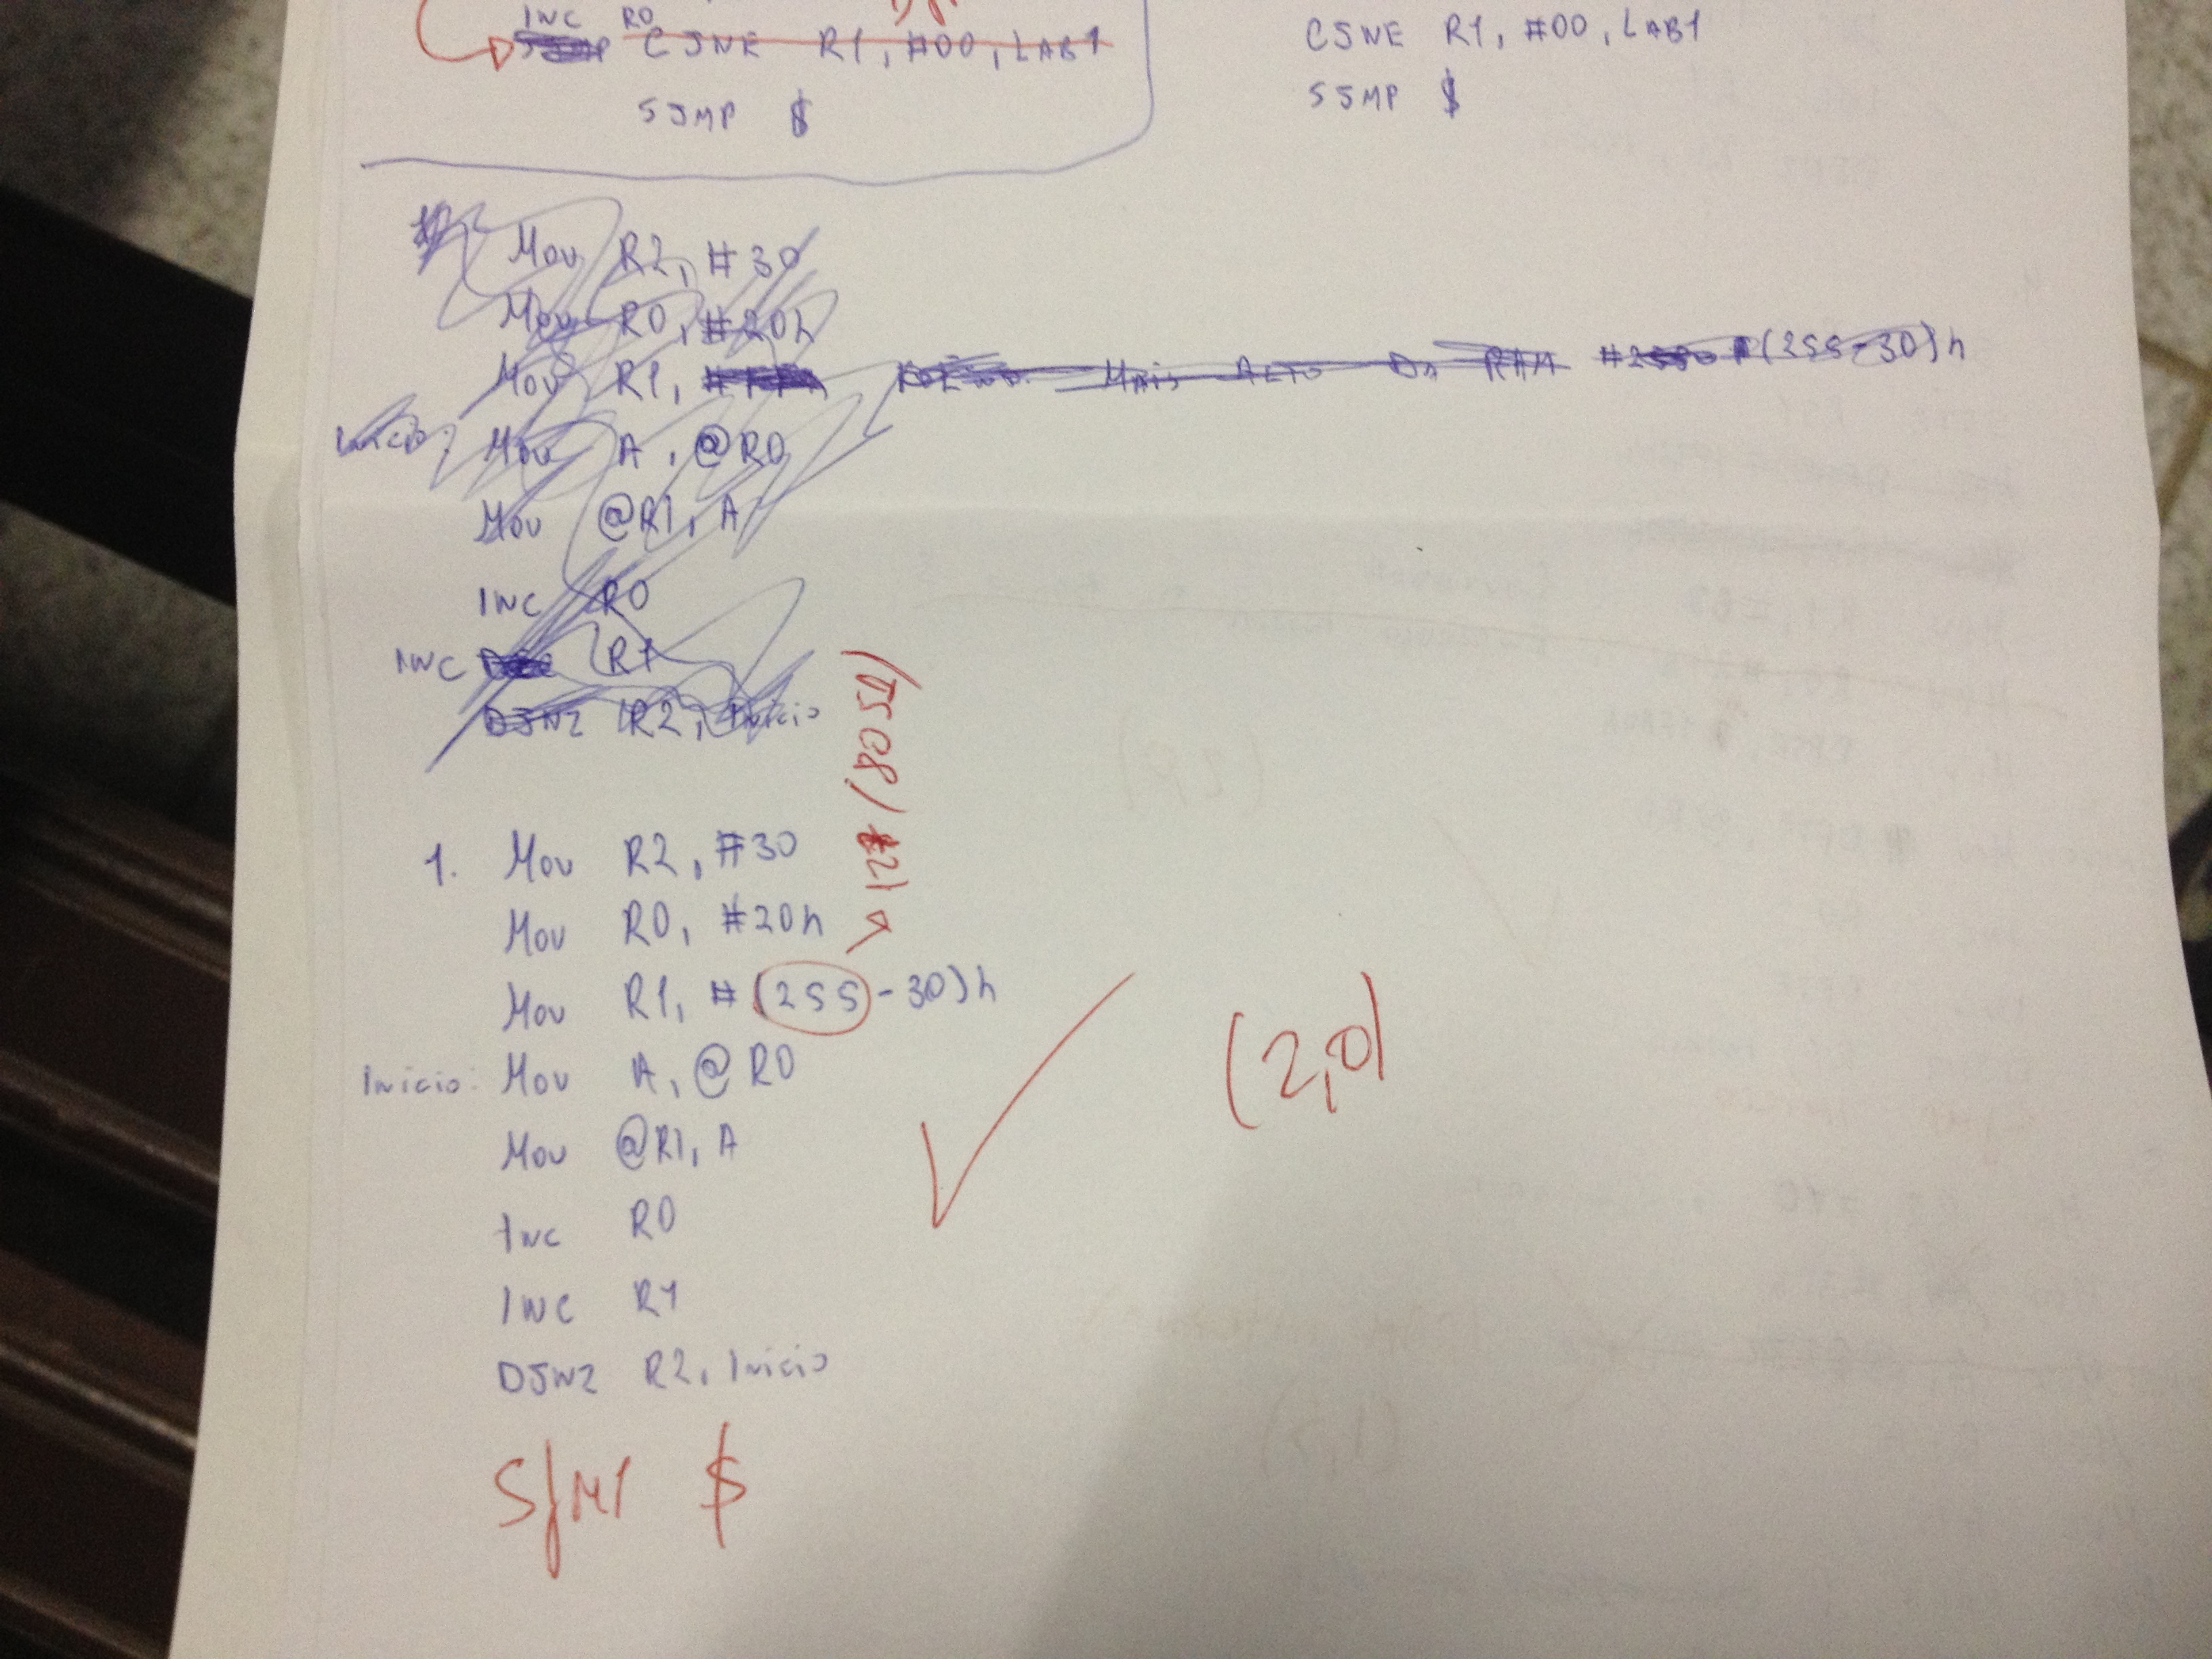 INC R0
CJNE R1, #00, LAB1
SJMP $
CJNE R1, #00, LAB1
SJMP $
Mov R2, #30
Mov R0, #20h
Mov R1, # Mais Alto Da RAM # (255-30)h
Inicio: Mov A, @R0
Mov @R1, A
INC R0
INC R1
DJNZ R2, Inicio
1. Mov R2, #30
Mov R0, #20h
Mov R1, #(255-30)h
(8051) 127
Inicio: Mov A, @R0
Mov @R1, A
Inc R0
Inc R1
DJNZ R2, Inicio
SJMP $
(2,0)